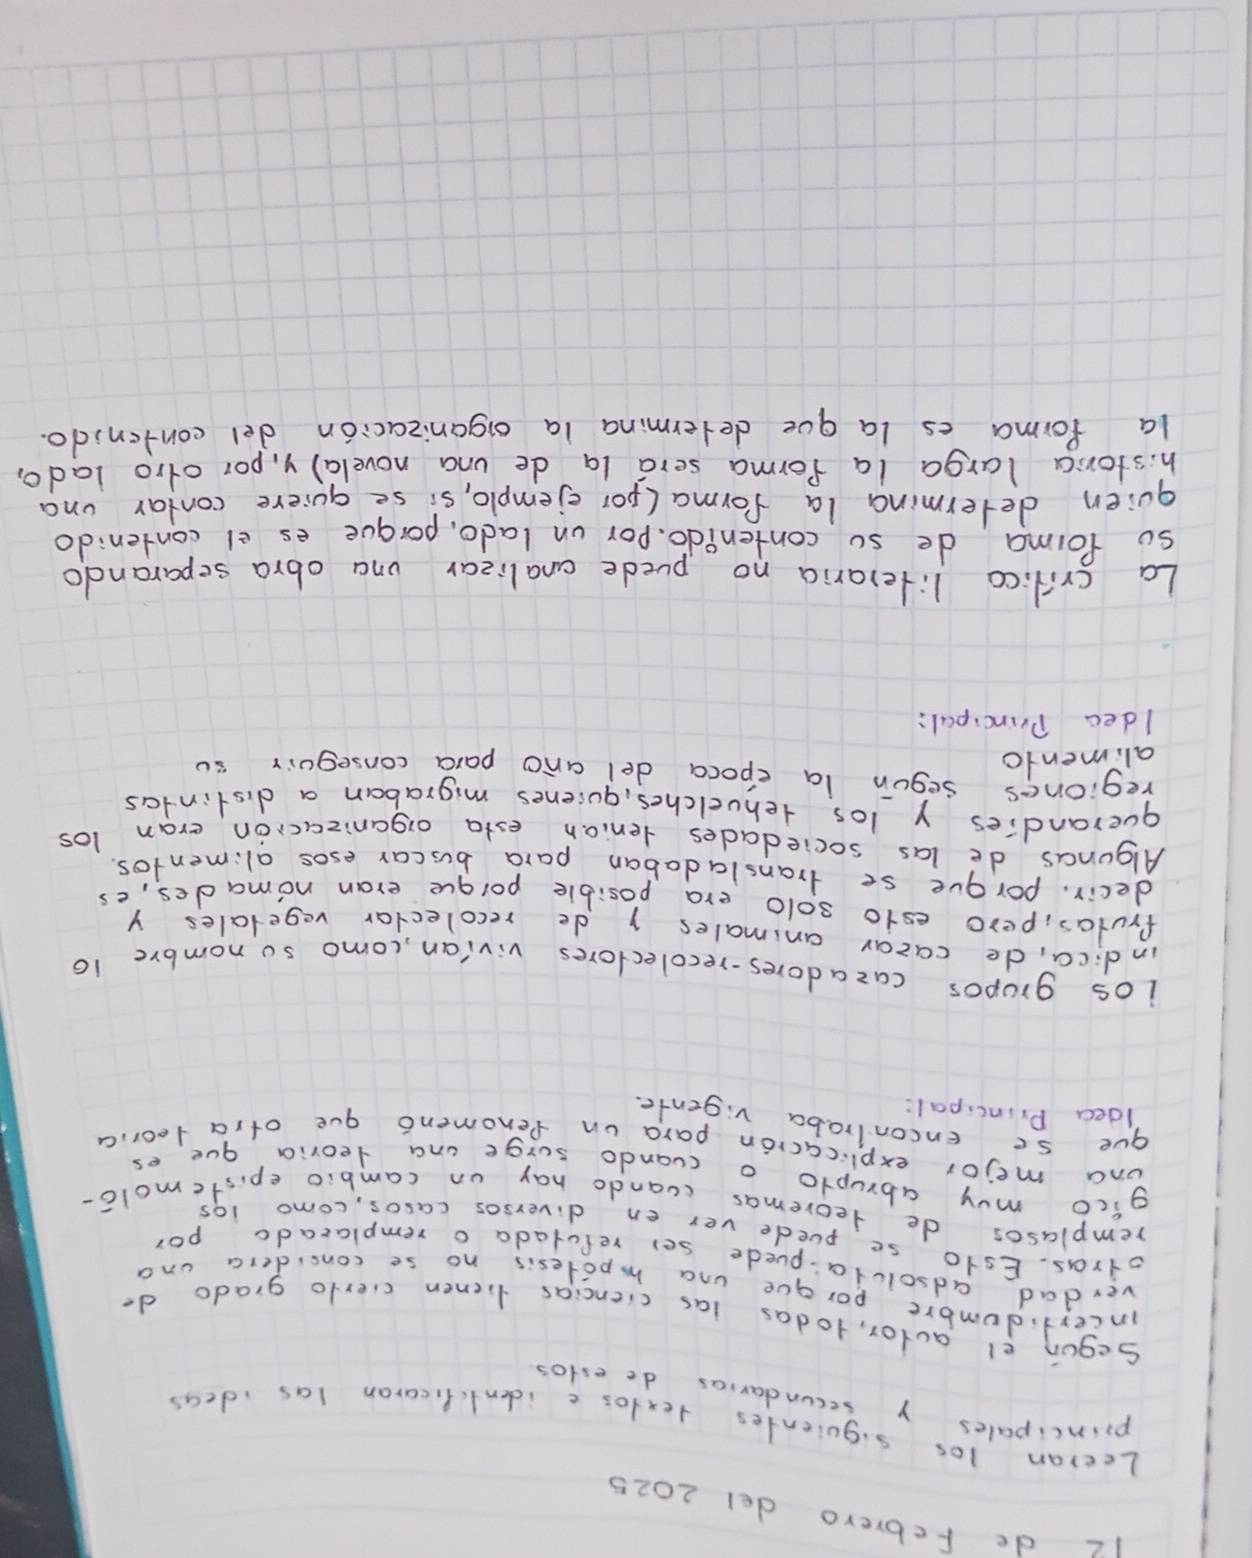 12 de Febrero del 2025
Leeran los siguientes textos e identificaran las ideas
principales y secundarias de estos.
Según el autor, todas las ciencias tienen cierto grado de
incertidumbre porque una hipótesis no se considera una
verdad adsoluta: puede ser refutada o remplazada por
otras. Esto se puede ver en diversos casos, como los
remplasos de teoremas cuando hay un cambio epistemoló-
gico muy abrupto o cuando surge una teoria que es
una mejor explicación para un fenomenó que otra teoria
que se encontraba vigente.
Idea Principal:
Los grupos cazadores-recolectores vivían, como su nombre lo
indica, de cazar animales y de recolectar vegetales y
frutas; pero esto solo era posible porque eran nómades, es
decir, porque se transladaban para buscar esos alimentos.
Algunas de las sociedades tenian esta organización eran los
querandíes y los tehuelches, quienes migraban a distintas
regiones según la época del año para conseguir su
alimento
Idea Principal:
La crítica literaria no puede analizar una obra separando
su forma de su contenido. Por un lado, porque es el contenido
quien determina la forma (por ejemplo, si se quiere contar una
historia larga la forma será la de una novela) y, por otro lado,
la forma es la que determina la organización del contenido.